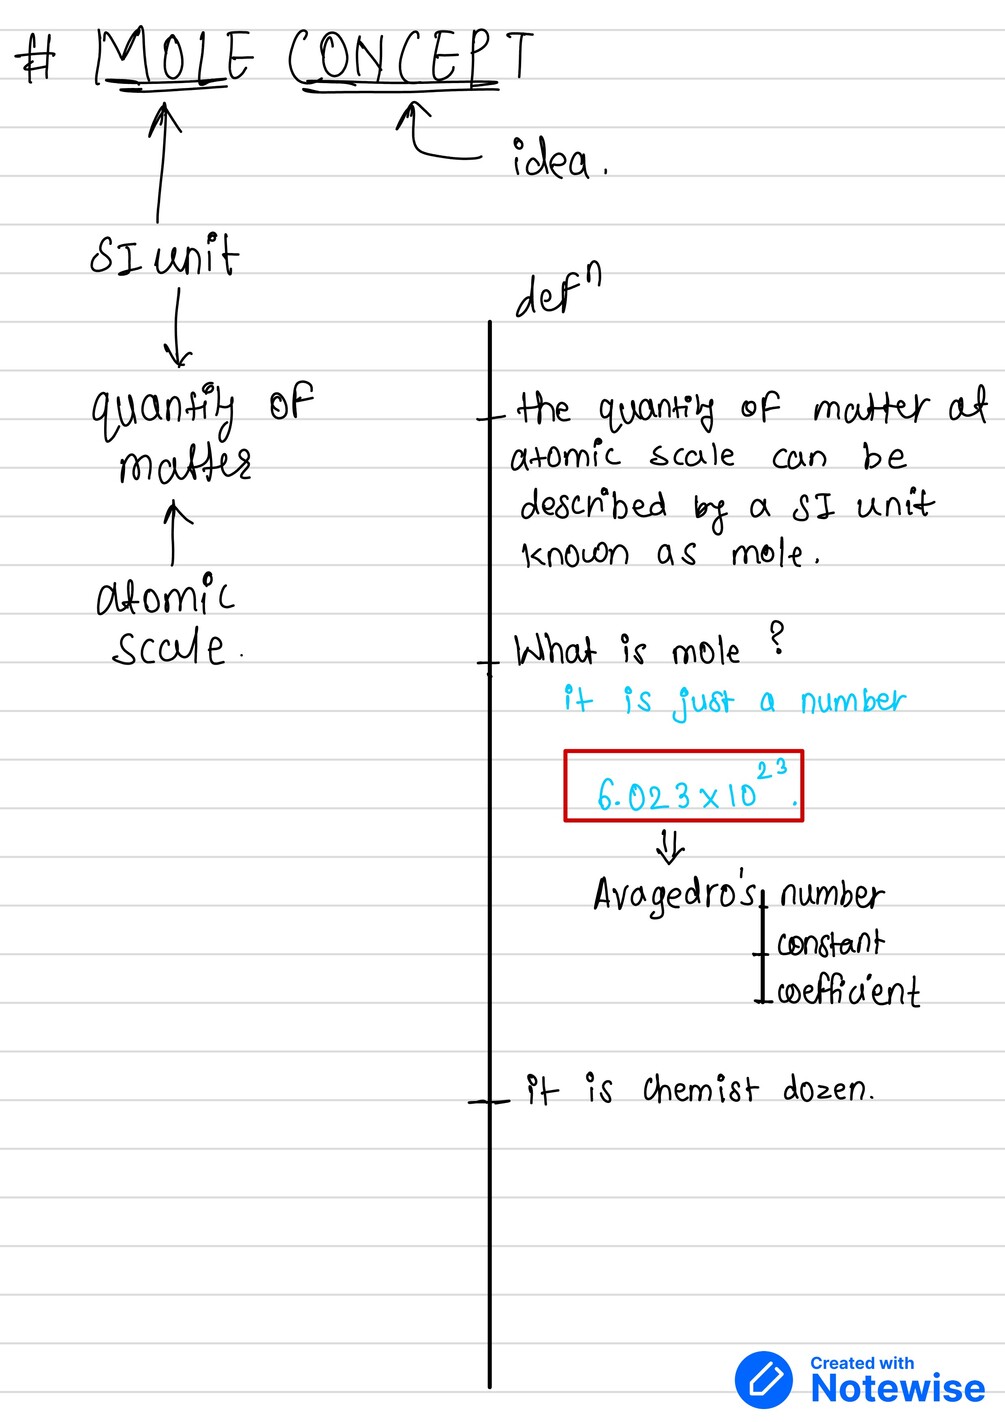 # MOLE CONCEPT
idea.
SI unit
quantity of
matter
atomic
scale.
defⁿ
the quantity of matter at
atomic scale can be
described by a SI unit
known as mole.
What is mole ?
it is just a number
6.023 x 10²³.
Avagedro's number
constant
coefficient
it is chemist dozen.
Created with
Notewise